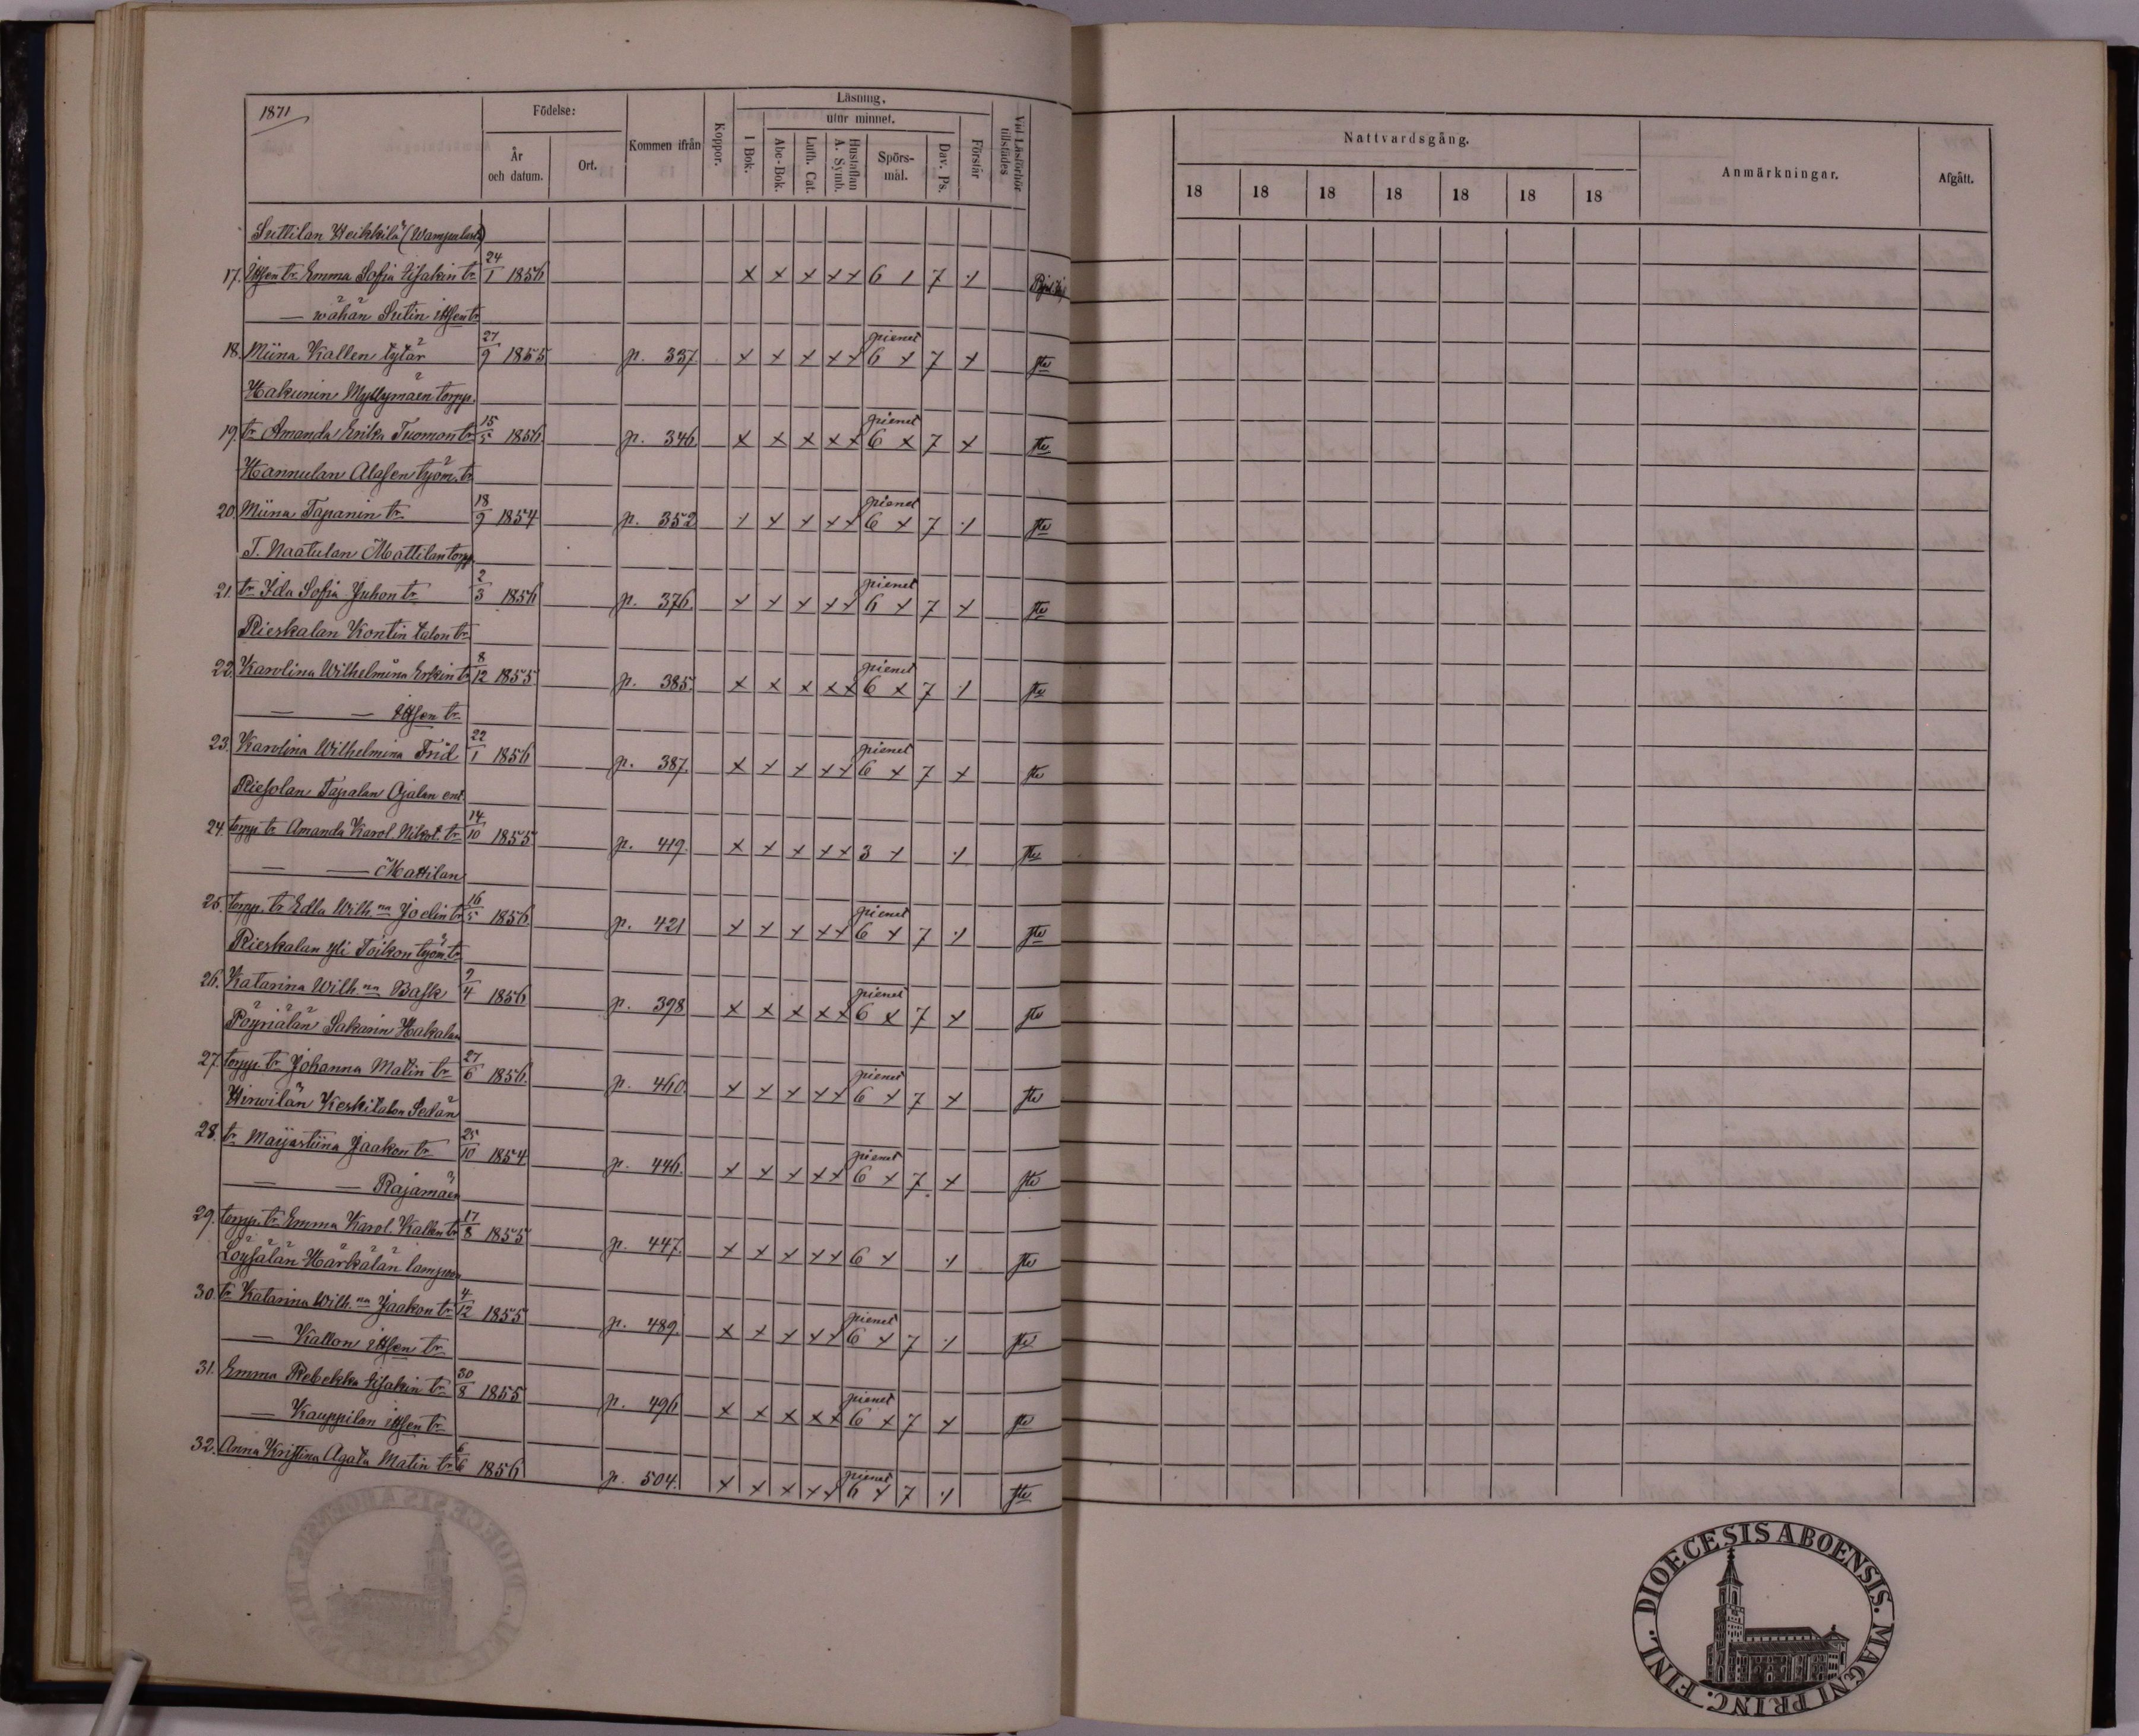 1871
Födelse:
År och datum.
Ort.
Kommen ifrån
Koppor.
Läsning,
utur minnet.
I Bok.
Abc-Bok.
Luth. Cat.
Hustaflan A. Symb.
Spörs-mål.
Dav. Ps.
Förstår
Vid Läsförhör tillstädes
Nattvardsgång.
18 18 18 18 18 18 18
Anmärkningar.
Afgått.
Suttilan Heikkilä
17. Itsen tr. Emma Sofia Iisakin tr 24/1 1856 x x x x x 6 1 7 ⁒
— wähän Sutin itsen tr
18. Miina Kallen tytär 27/9 1855 p. 337. x x x x x pienet 6 x 7 x
Hakunin Myllymäen torpp.
19. tr Amanda Erika Tuomon tr 15/5 1856 p. 346 x x x x x pienet 6 x 7 x
Hannulan Alasen työm. tr
20. Miina Tapanin tr 18/9 1854 p. 352 ⁒ x x x x pienet 6 x 7 ⁒
T. Naatulan Mattilan torpp
21. tr Ida Sofia Juhon tr 2/3 1856 p. 376. x x x x x pienet 6 x 7 x
Rieskalan Kontin talon tr
22. Karolina Wilhelmina Erkin tr 8/12 1855 p. 385. x x x x x pienet 6 x 7 ⁒
— — itsen tr
23. Karolina Wilhelmina Frid 22/1 1856 p. 387. x x x x x pienet 6 x 7 x
Riesolan Tapalan Ojalan ent.
24. torpp. tr Amanda Karol. Nikol. tr 14/10 1855 p. 419. x x x x x 3 x ⁒
— — Mattilan
25. torpp. tr Edla Wilh.na Joelin tr 16/5 1856 p. 421 x x x x x pienet 6 x 7 ⁒
Rieskalan yli Toikon työm. tr
26. Katarina Wilh.na Bask 9/4 1856 p. 398 x x x x x pienet 6 x 7 x
Pöyriälän Sakarin Hakalan
27. torpp. tr Johanna Matin tr 27/6 1856. p. 460. x x x x x pienet 6 x 7 x
Hirwilän Keskitalon Sedän
28. tr Maijastiina Jaakon tr 25/10 1854 p. 446. x x x x x pienet 6 x 7. x
— — Rajamäen
29. torpp. tr Emma Karol. Kallen tr 17/8 1855 p. 447. x x x x x 6 x ⁒
Löysälän Härkälän lampuo
30. tr Katarina Wilh.na Jaakon tr 4/12 1855 p. 489. x x x x x pienet 6 x 7 ⁒
— Kallon itsen tr
31. Emma Rebekka Iisakin tr 30/8 1855 p. 496 x x x x x pienet 6 x 7 x
— Kauppilan itsen tr
32. Anna Kristina Agata Matin tr 6/6 1856 p. 504. x x x x x pienet 6 x 7 ⁒
DIOECESIS ABOENSIS. MAGNI PRINC. FINL.